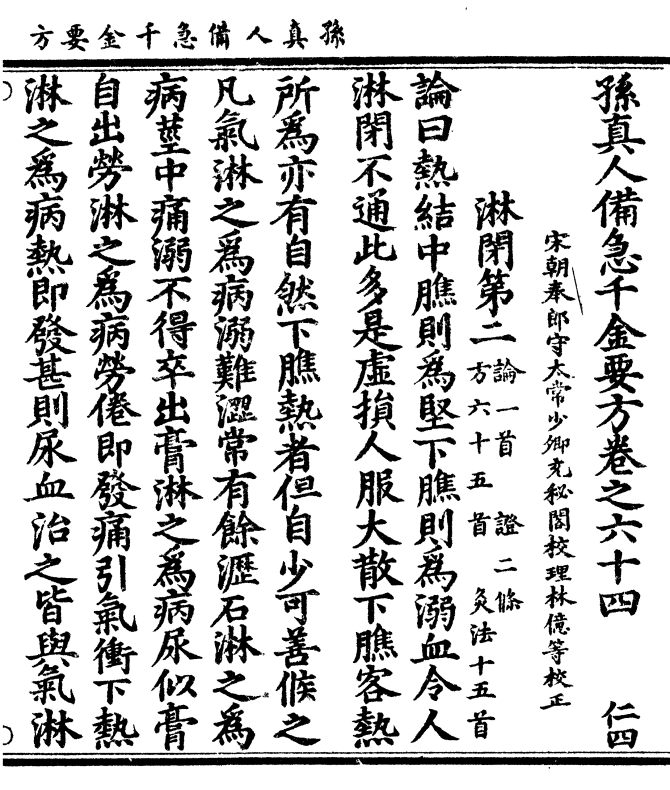 孫真人備急千金要方
孫真人備急千金要方卷之六十四 仁四
宋朝奉郎守太常少卿充秘閣校理林億等校正
淋閉第二 論一首 證二條 方六十五首 灸法十五首
論曰熱結中膲則為堅下膲則為溺血令人
淋閉不通此多是虛損人服大散下膲客熱
所為亦有自然下膲熱者但自少可善候之
凡氣淋之為病溺難澀常有餘瀝石淋之為
病莖中痛溺不得卒出膏淋之為病尿似膏
自出勞淋之為病勞倦即發痛引氣衝下熱
淋之為病熱即發甚則尿血治之皆與氣淋